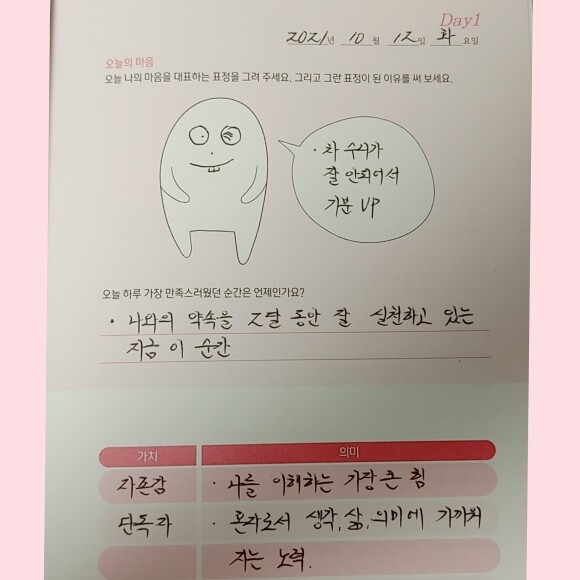 Day1
2021년 10월 12일 화요일
오늘의 마음
오늘 나의 마음을 대표하는 표정을 그려 주세요. 그리고 그런 표정이 된 이유를 써 보세요.
· 차 수리가
잘 안되어서
기분 UP
오늘 하루 가장 만족스러웠던 순간은 언제인가요?
· 나와의 약속을 2달 동안 잘 실천하고 있는
지금 이 순간
가치 의미
자존감 · 나를 이해하는 가장 큰 힘
단독자 · 혼자로서 생각, 삶, 의미에 가까워
지는 노력.